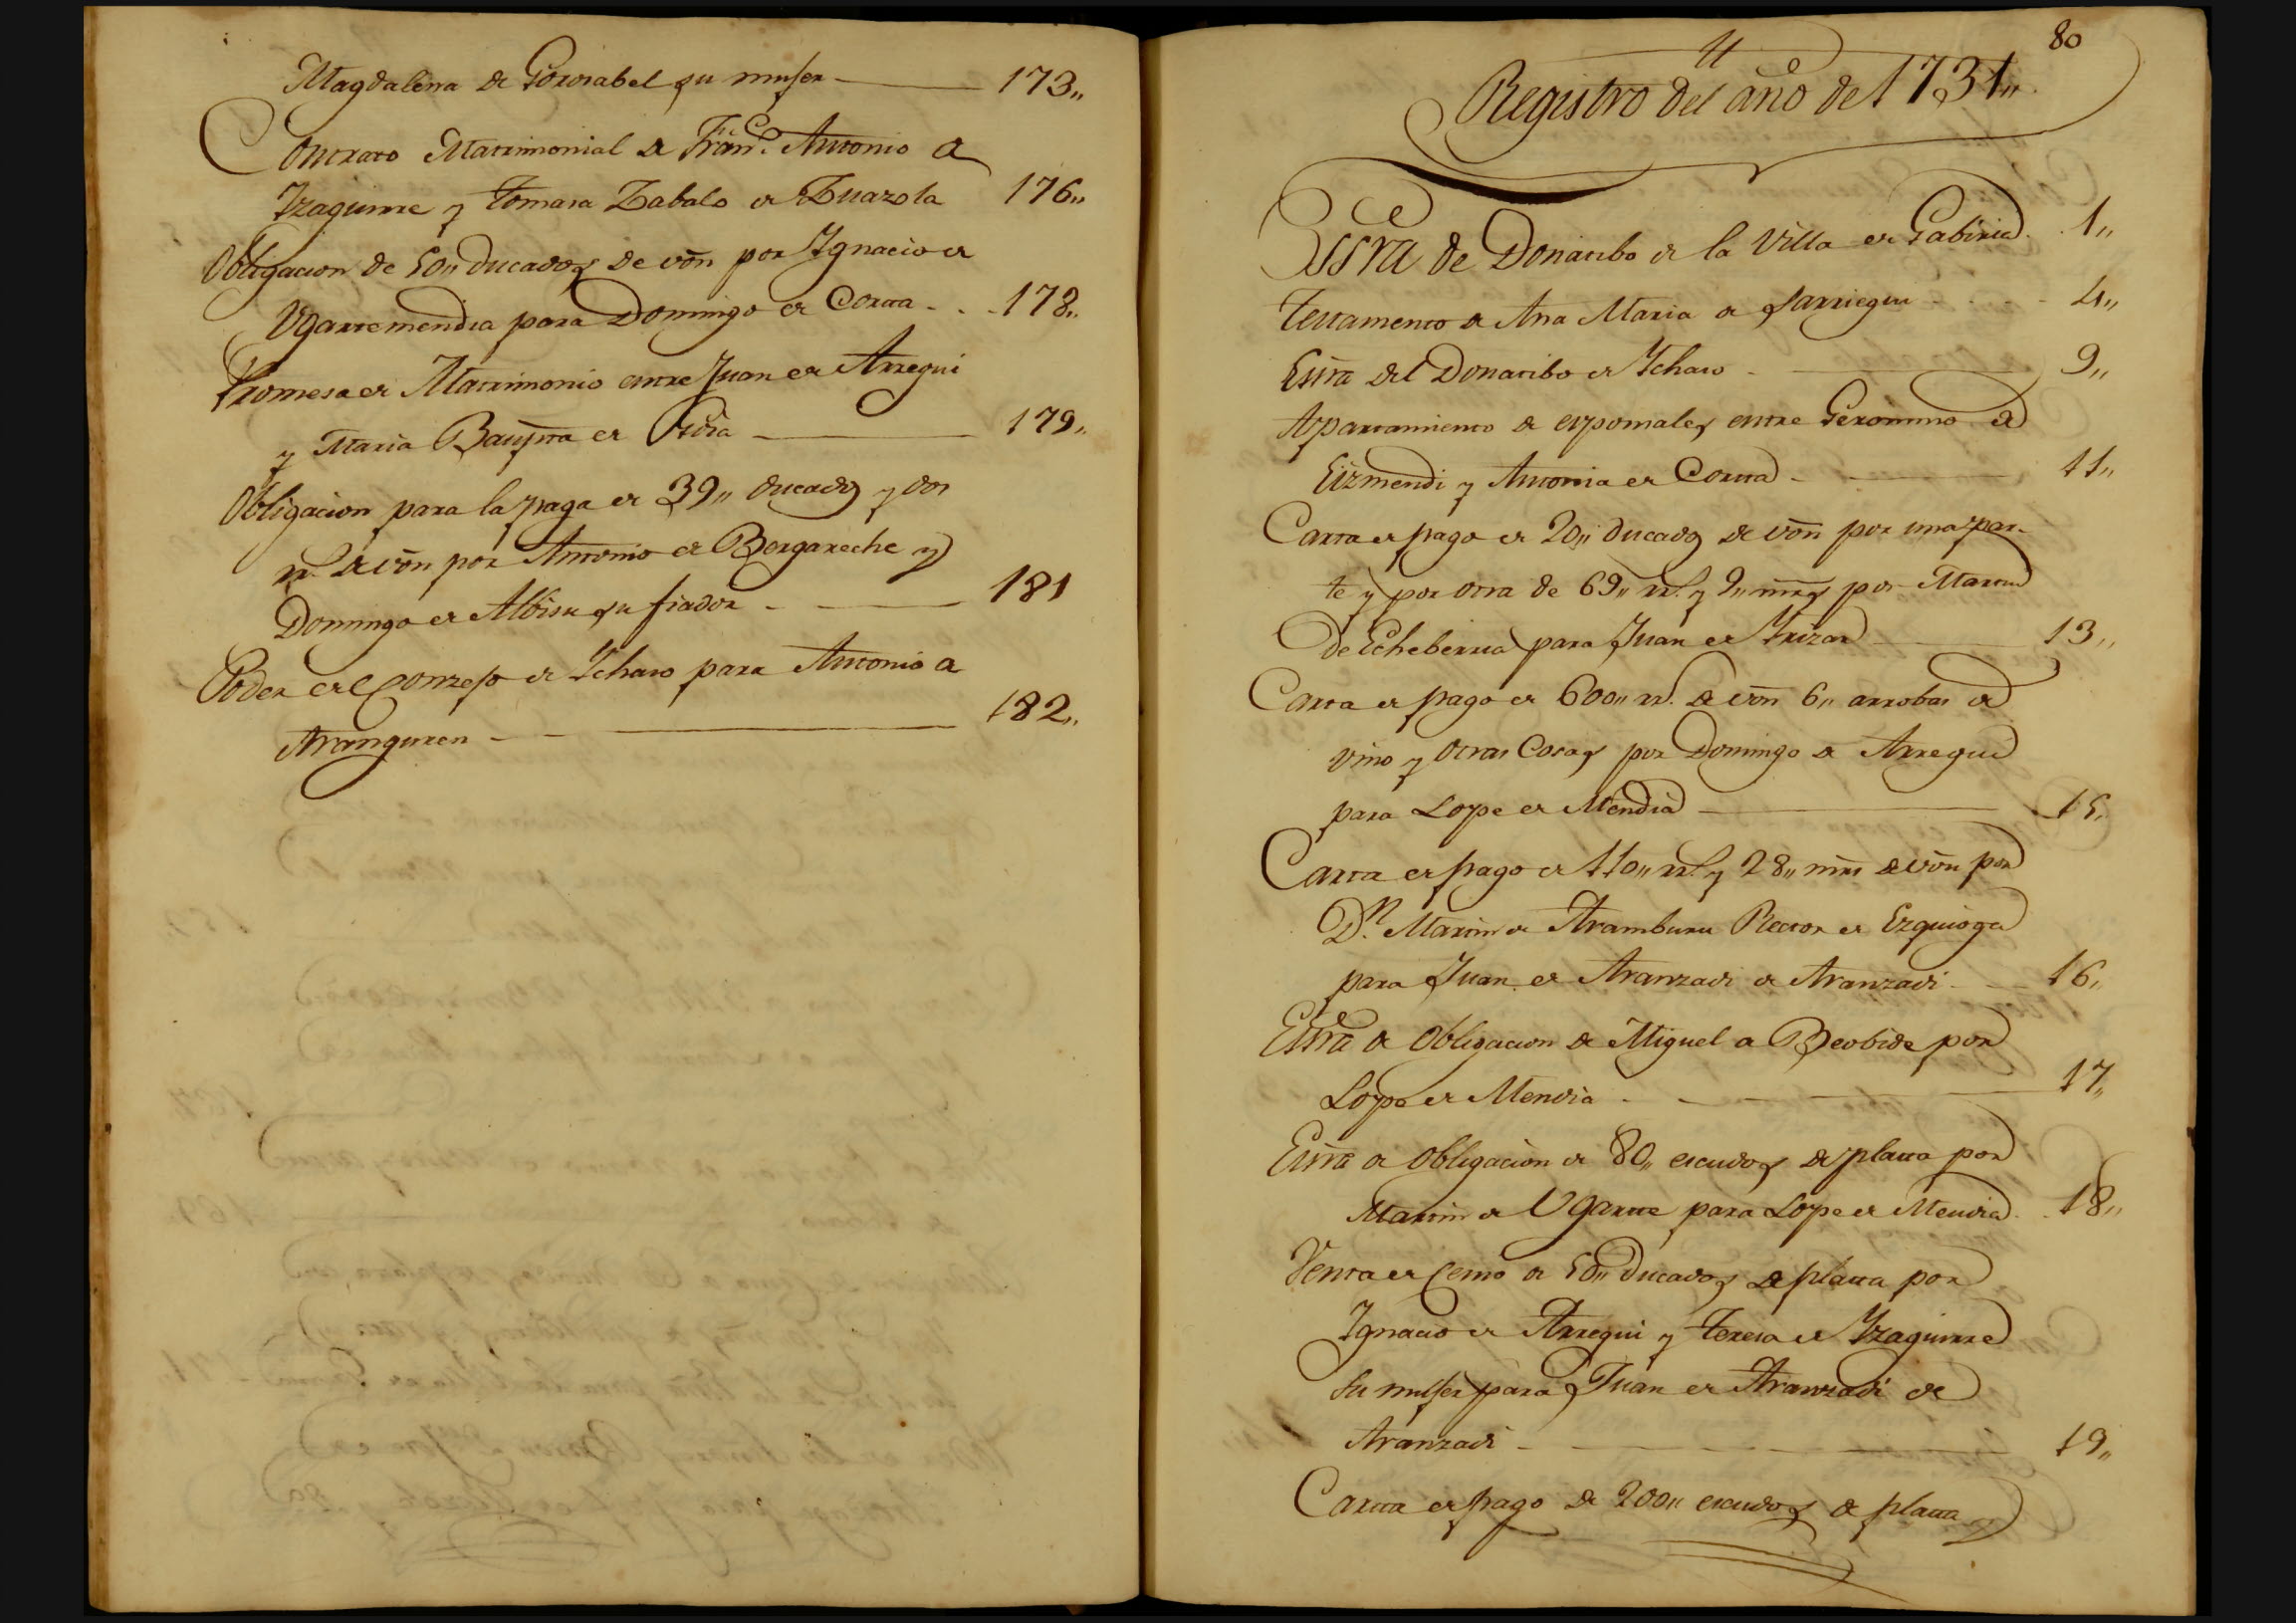 Magdalena de Gorosabel su muger — 173,,
Contrato Matrimonial de Fran.co Antonio de
Yzaguirre y Tomasa Zabalo de Zuazola 176,,
Obligacion de 50,, ducados de von por Ygnacio de
Ugartemendia para Domingo de Corta - . . 178,,
Promesa de Matrimonio entre Juan de Arregui
y Maria Baup.ta de Oria — 179,,
Obligacion para la paga de 39,, ducados y dos
rr.s de von por Antonio de Bergareche y
Domingo de Albisu su fiador - — 181
Poder del Conzejo de Ychaso para Antonio de
Aranguren - — 182,,
80
Registro del año de 1731,,
Essra de Donatibo de la Villa de Gabiria . . 1,,
Testamento de Ana Maria de Sarriegui - - - 4,,
Essra del Donatibo de Ychaso - — 9,,
Apartamiento de esponsales entre Geronimo de
Eizmendi y Antonia de Corta - — 11,,
Carta de pago de 20,, ducados de von por una par-
te y por otra de 69,, rr.s y 9,, mrs por Martin
de Echeberria para Juan de Yrizar — 13,,
Carta de pago de 600,, rr.s de von 6,, arrobas de
vino y otras Cosas por Domingo de Arregui
para Lope de Mendia — 15,
Carta de pago de 110,, rr.s y 28,, mrs de von por
D.n Martin de Aramburu Rector de Ezquioga
para Juan de Aranzadi de Aranzadi - — 16,,
Essra de Obligacion de Miguel de Beobide por
Lope de Mendia - — 17,,
Essra de Obligacion de 80,, escudos de plata por
Martin de Ugarte para Lope de Mendia . . 18,,
Venta de Censo de 50,, Ducados de plata por
Ygnacio de Arregui y Teresa de Yzaguirre
su muger para Juan de Aranzadi de
Aranzadi - — 19,,
Carta de pago de 200,, escudos de plata